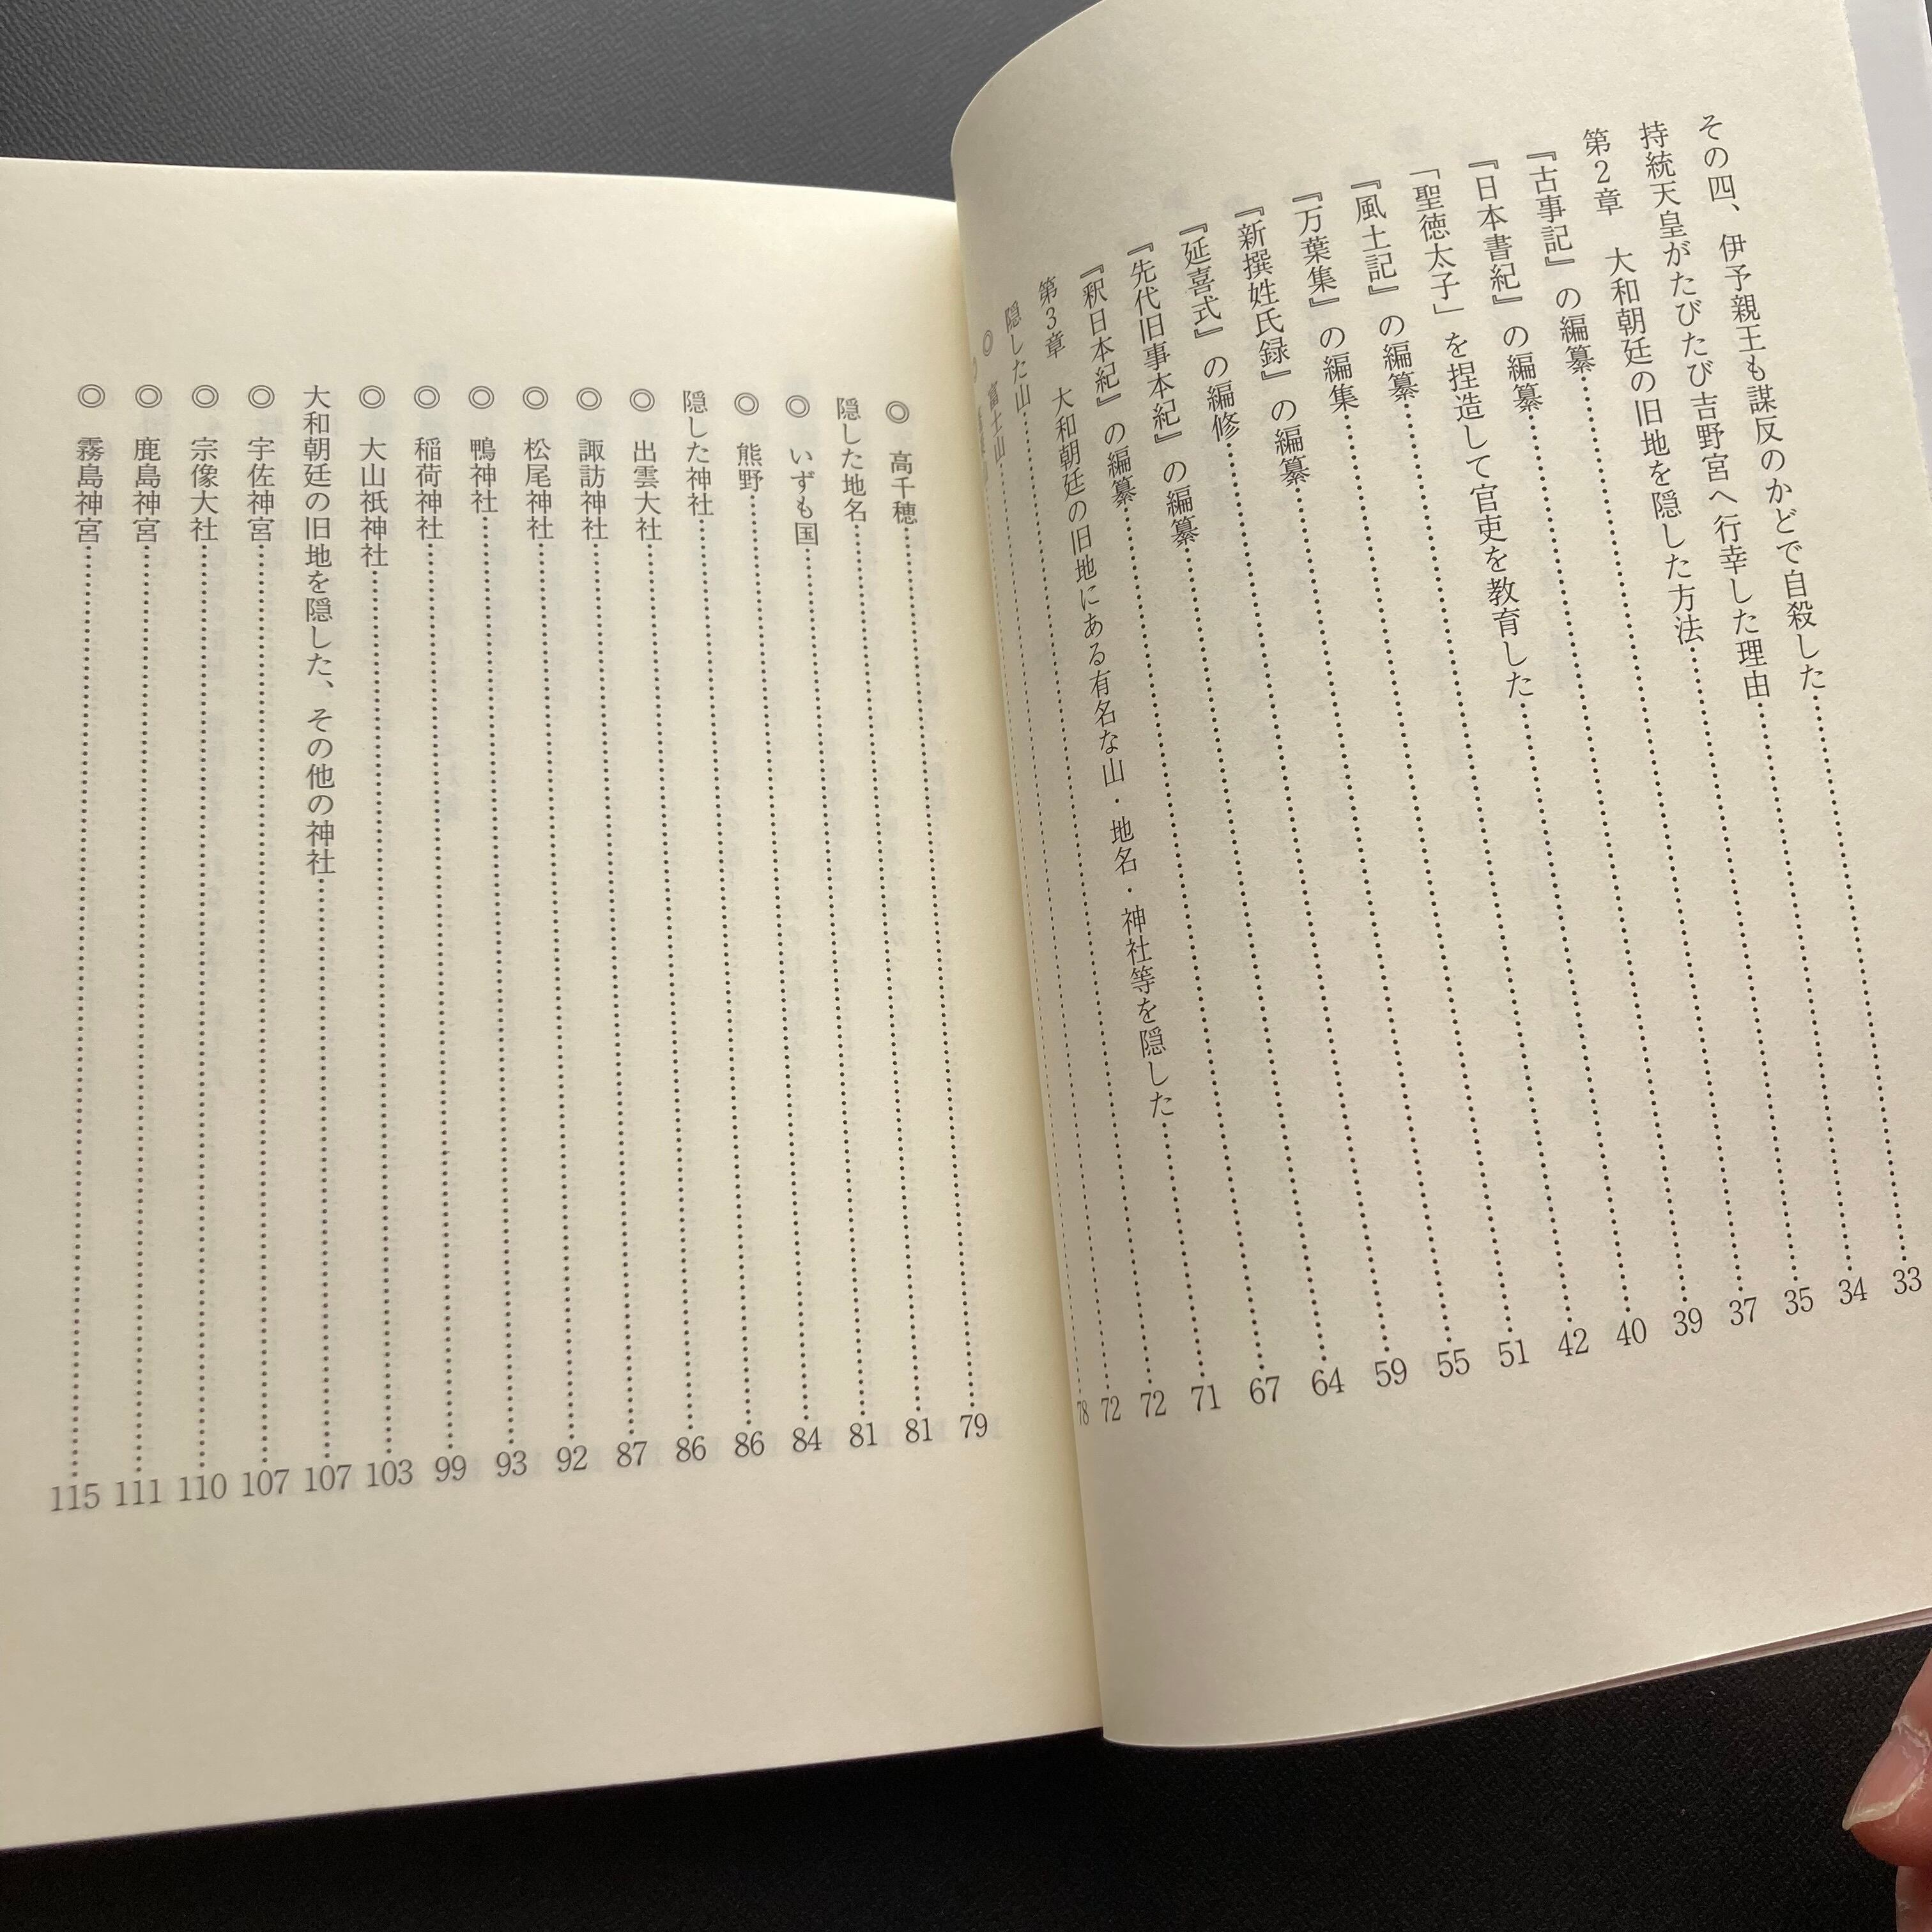 その四、伊予親王も謀反のかどで自殺した……33
持統天皇がたびたび吉野宮へ行幸した理由……34
第2章　大和朝廷の旧地を隠した方法……35
『古事記』の編纂……37
『日本書紀』の編纂……39
「聖徳太子」を捏造して官吏を教育した……40
『風土記』の編纂……42
『万葉集』の編集……51
『新撰姓氏録』の編纂……55
『延喜式』の編修……59
『先代旧事本紀』の編纂……64
『釈日本紀』の編纂……67
第3章　大和朝廷の旧地にある有名な山・地名・神社等を隠した……71
隠した山……72
◎　富士山……72
◎　……78
◎　高千穂……79
隠した地名……81
◎　いずも国……81
◎　熊野……84
隠した神社……86
◎　出雲大社……86
◎　諏訪神社……87
◎　松尾神社……92
◎　鴨神社……93
◎　稲荷神社……99
◎　大山祇神社……103
大和朝廷の旧地を隠した、その他の神社……107
◎　宇佐神宮……107
◎　宗像大社……110
◎　鹿島神宮……111
◎　霧島神宮……115